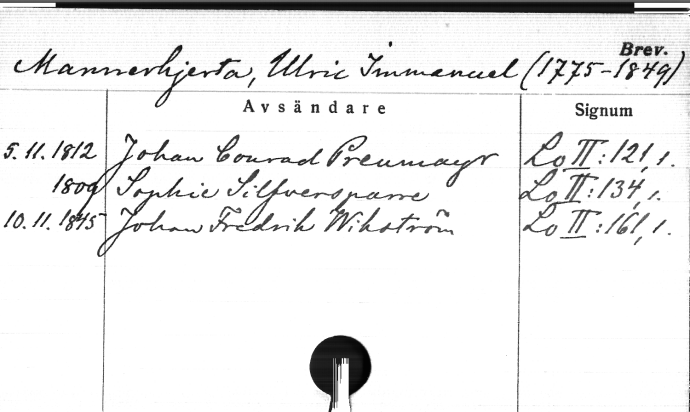 Brev.
Mannerhjerta, Ulric Immanuel (1775-1849)
Avsändare Signum
5.11.1812 Johan Conrad Preumayr Lo II:121,1.
1809 Sophie Silfversparre Lo II:134,1.
10.11.1845 Johan Fredrik Wikström Lo II:161,1.